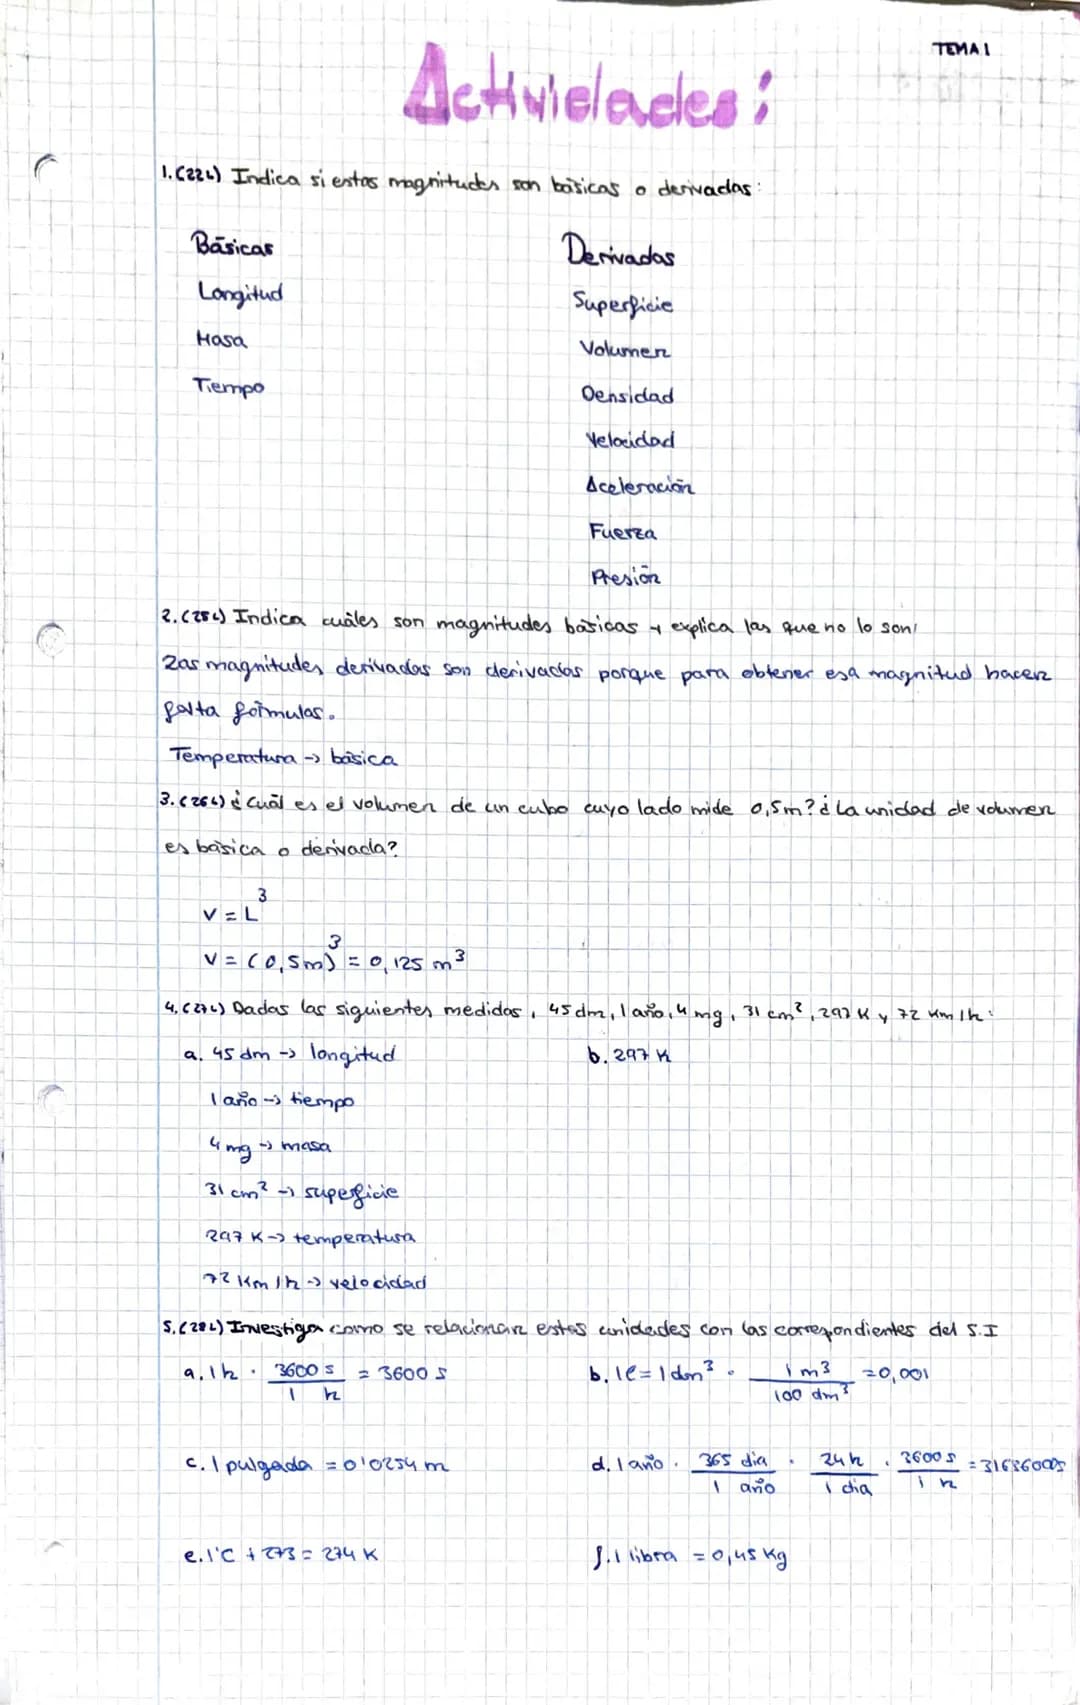 TEMA 1
Actividades:
1. (22L) Indica si estas magnitudes son básicas o derivadas:
Básicas
Longitud
Masa
Tiempo
Derivadas
Superficie
Volumen
Densidad
Velocidad
Aceleración
Fuerza
Presión
2. (25L) Indica cuáles son magnitudes básicas y explica las que no lo son/
Las magnitudes derivadas son derivadas porque para obtener esa magnitud hacen
falta fórmulas.
Temperatura -> básica
3. (26L) ¿Cuál es el volumen de un cubo cuyo lado mide 0,5m? ¿La unidad de volumen
es básica o derivada?
V = L³
V = (0,5m)³ = 0,125 m³
4. (27L) Dadas las siguientes medidas, 45 dm, 1 año, 4 mg, 31 cm², 297 K y 72 Km/h:
a. 45 dm -> longitud
1 año -> tiempo
4 mg -> masa
31 cm² -> superficie
297 K -> temperatura
72 Km/h -> velocidad
b. 297 K
5. (28L) Investiga como se relacionan estas unidades con las correspondientes del S.I
a. 1 h · 3600 s / 1 h = 3600 s
b. 1ℓ = 1 dm³ · 1 m³ / 100 dm³ = 0,001
c. 1 pulgada = 0'0254 m
d. 1 año · 365 dia / 1 año · 24 h / 1 dia · 3600 s / 1 h = 31636000s
e. 1°C + 273 = 274 K
f. 1 libra = 0,45 Kg